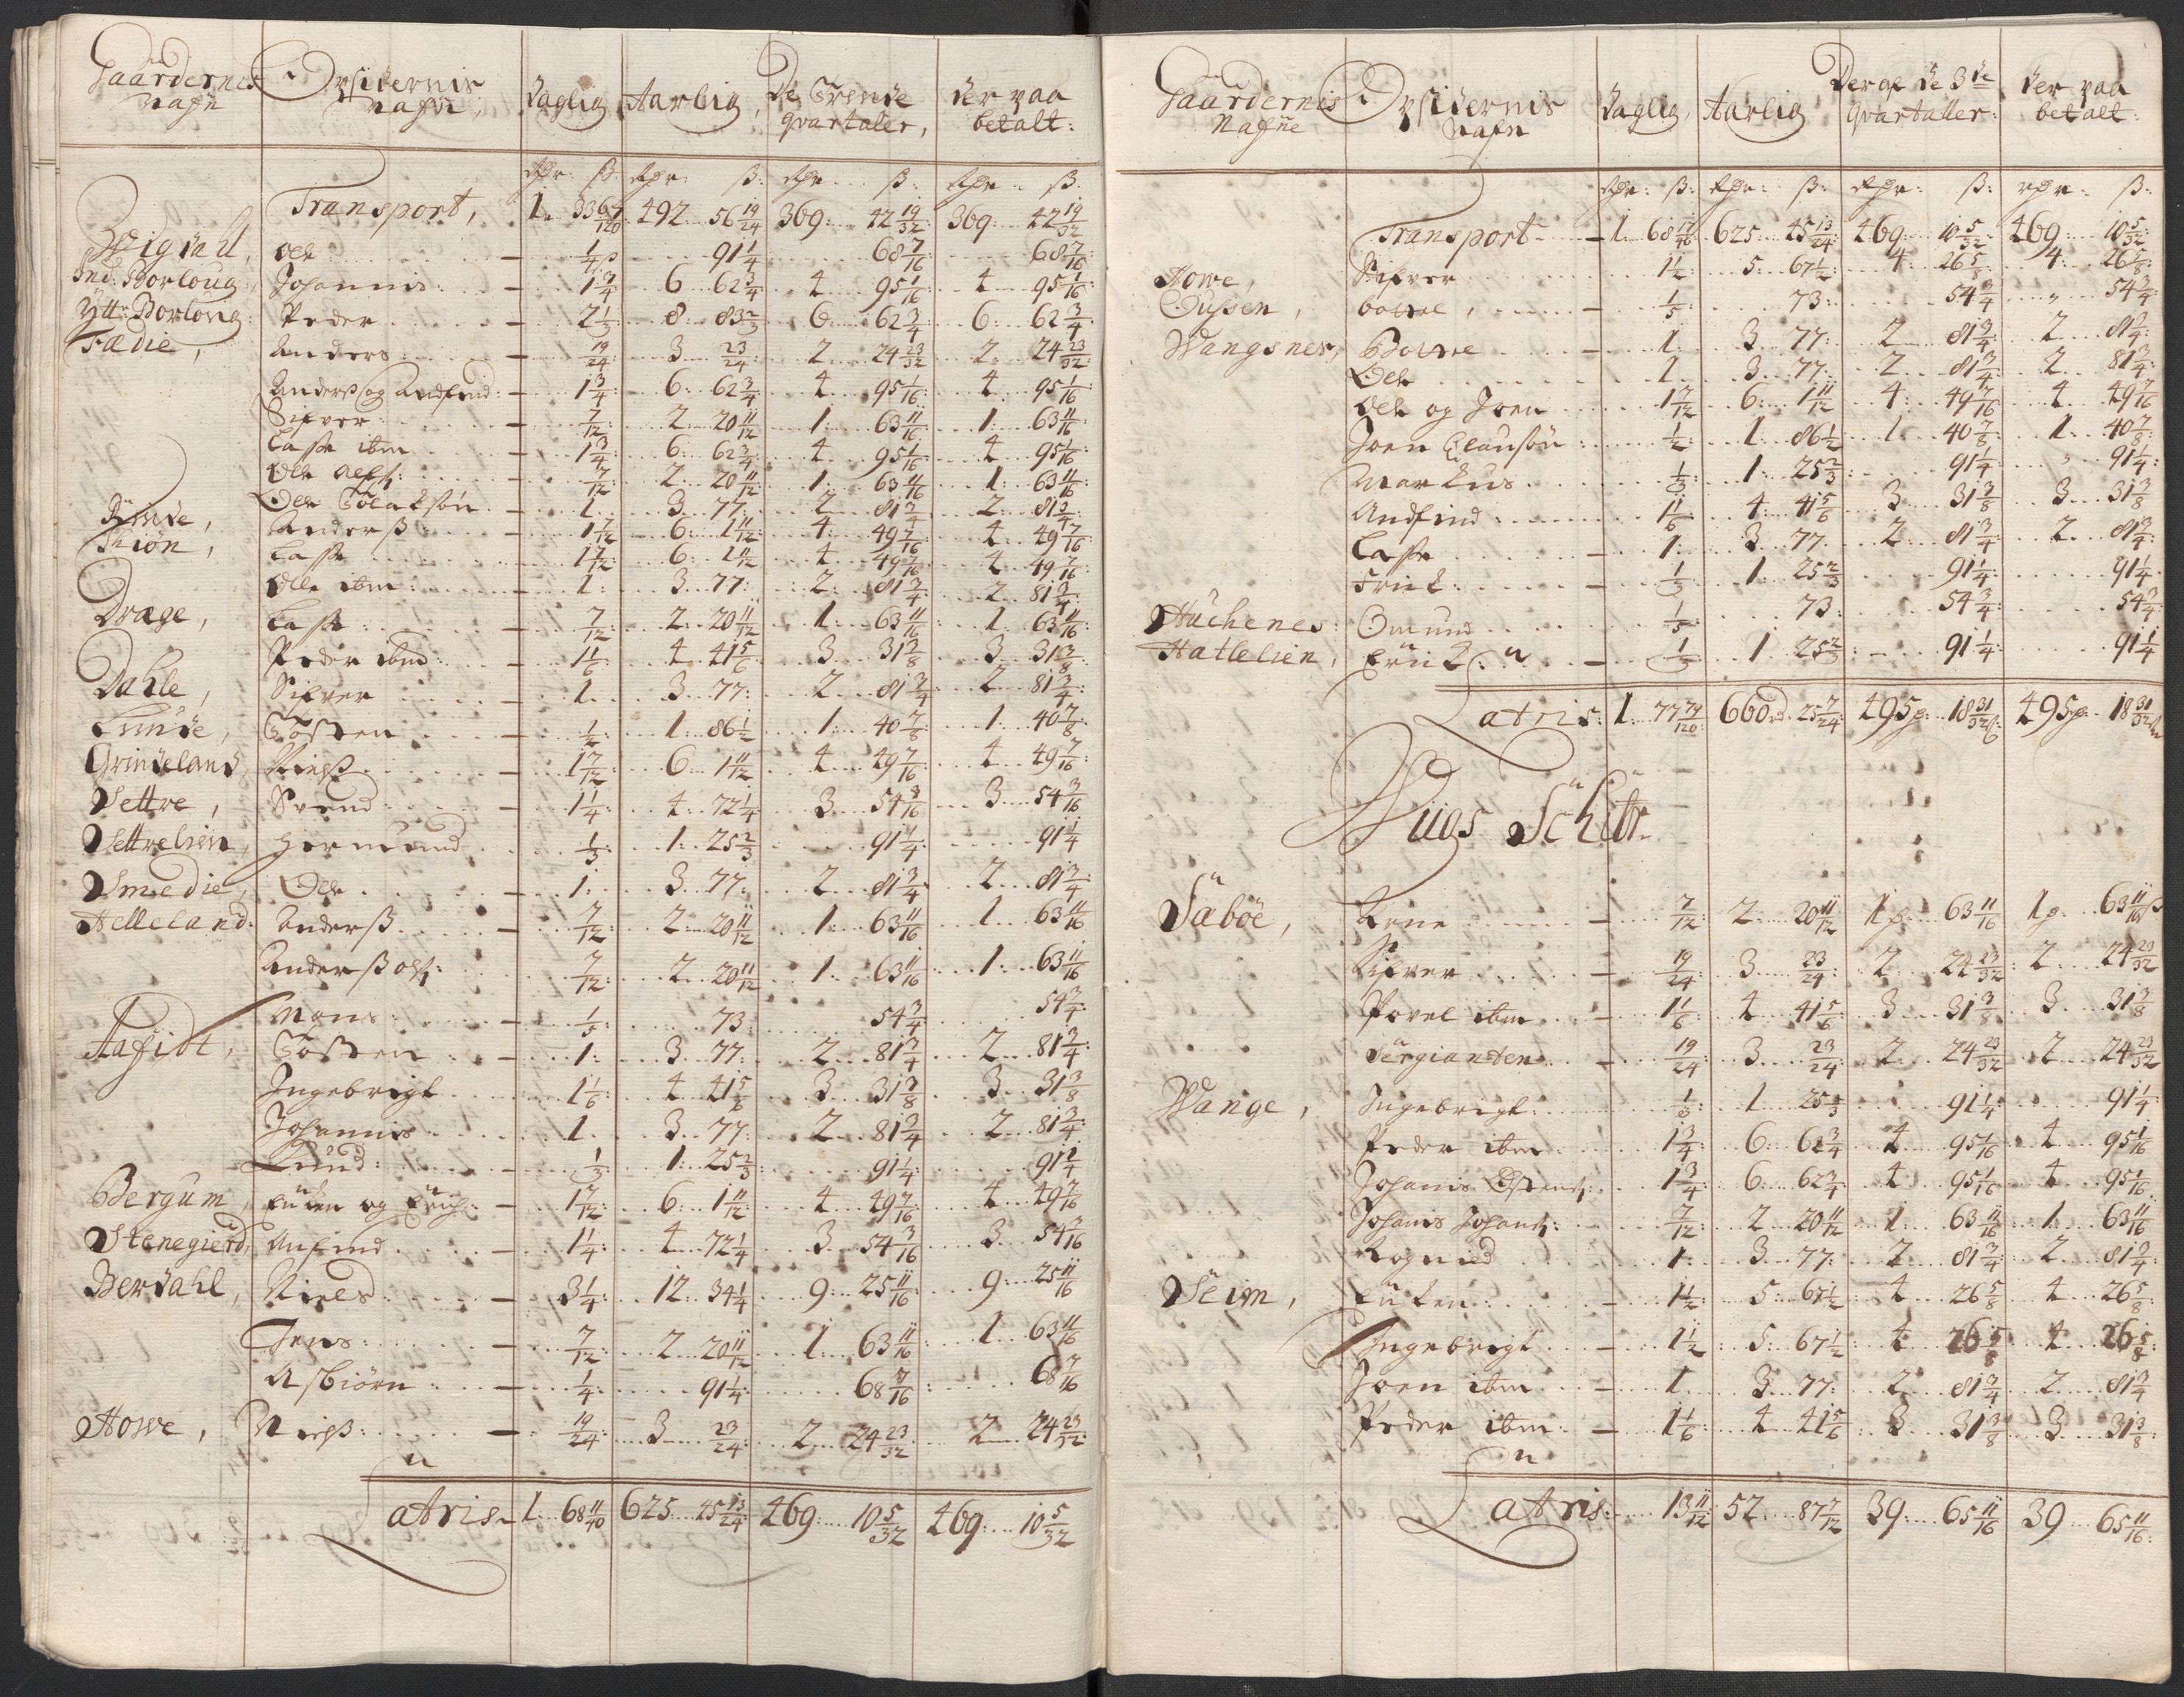 Gaardernes Nafn | Opsidernis Nafn, | Daglig | Aarlig, | De Trende qvartaler, | der paa betalt:
Rdr: ß: | Rdr: ß: | Rdr ß: | Rdr ß:
Transport, | 1. 33 67/120 | 492. 56 19/24 | 369: 42 19/32 | 369: 42 19/32
Ole | 1/4 ß | 91 1/4 | 68 7/16 | 68 7/16
Ind: Borloug | Johannis | 1 3/4 | 6 62 3/4 | 4 95 1/16 | 4 95 1/16
Ytt: Borloug | Peder | 2 1/3 | 8 83 2/3 | 6 62 3/4 | 6 62 3/4
Fædie, | Anders | 19/24 | 3 23/24 | 2 24 23/32 | 2 24 23/32
Anderß og Andfind | 1 3/4 | 6: 62 3/4 | 4 95 1/16 | 4 95 1/16
Sifver | 7/12 | 2 20 11/12 | 1: 63 11/16 | 1: 63 11/16
Lasse ibm | 1 3/4 | 6: 62 3/4 | 4 95 1/16 | 4 95 1/16
Ole | 7/12 | 2 20 11/12 | 1: 63 11/16 | 1: 63 11/16
Ole | 1 | 3 77 | 2 81 3/4 | 2: 81 3/4
Anderß | 1 7/12 | 6: 1 11/12 | 4: 49 7/16 | 4 49 7/16
Lasse | 1 7/12 | 6: 1 11/12 | 4 49 7/16 | 4 49 7/16
Ole ibm | 1: | 3 77: | 2: 81 3/4 | 2 81 3/4
Drage, | Lasse | 7/12 | 2: 20 11/12 | 1: 63 11/16 | 1 63 11/16
Peder ibm | 1 1/6 | 4 41 5/6 | 3 31 3/8 | 3 31 3/8
Dahle, | Sifver | 1 | 3 77: | 2 81 3/4 | 2 81 3/4
Lunde, | Tosten | 1/2 | 1: 86 1/2 | 1: 40 7/8 | 1: 40 7/8
Grindeland, | Nielß | 1 7/12 | 6 1 11/12 | 4 49 7/16 | 4 49 7/16
Settre, | Svend | 1 1/4 | 4 72 1/4 | 3 54 3/16 | 3 54 3/16
Settrelien, | Hermund | 1/3 | 1: 25 2/3 | 91 1/4 | 91 1/4
Smedie, | Ole | 1: | 3 77: | 2 81 3/4 | 2 81 3/4
Helleland: | Anderß | 7/12 | 2 20 11/12 | 1: 63 11/16 | 1 63 11/16
Anderß olß: | 7/12 | 2 20 11/12 | 1: 63 11/16 | 1: 63 11/16
Mons | 1/5 | 73 | 54 3/4 | 54 3/4
Tosten | 1: | 3 77: | 2: 81 3/4 | 2 81 3/4
Ingebrigt | 1 1/6 | 4 41 5/6 | 3 31 3/8 | 3 31 3/8
Johannis | 1 | 3 77: | 2 81 3/4 | 2 81 3/4
Knud | 1/3 | 1: 25 2/3 | 91 1/4 | 91 1/4
Bergum, | 1 7/12 | 6: 1 11/12 | 4 49 7/16 | 4 49 7/16
Stenegierd, | Anfind | 1 1/4 | 4 72 1/4 | 3 54 3/16 | 3 54 3/16
Berdahl, | Niels | 3 1/4 | 12 34 1/4 | 9: 25 11/16 | 9: 25 11/16
Jens | 7/12 | 2 20 11/12 | 1 63 11/16 | 1 63 11/16
Asbiörn | 1/4 | 91 1/4 | 68 7/16 | 68 7/16
Howe, | Nielß | 19/24 | 3 23/24 | 2 24 23/32 | 2 24 23/32
Latris | 1: 68 11/40 | 625 45 13/24 | 469 10 5/32 | 469 10 5/32
Gaardernis Nafne | Opsidernis Nafn | Daglig, | Aarlig | Der af de 3de qvartaller: | der paa betalt:
Rdr: ß: | Rdr: ß: | Rdr: ß: | rdr: ß:
Transport | 1 68 11/40 | 625 45 13/24 | 469 10 5/32 | 469 10 5/32
Howe, | Sifver | 1 1/2 | 5: 67 1/2 | 4: 26 5/8 | 4: 26 5/8
1/5 | 73: | 54 3/4 | 54 3/4
Wangsnes, | 1 | 3 77: | 2 81 3/4 | 2 81 3/4
Ole | 1 | 3 77: | 2 81 3/4 | 2 81 3/4
Ole og Joen | 1 7/12 | 6: 1 11/12 | 4: 49 7/16 | 4 49 7/16
Joen Clausön | 1/2 | 1 86 1/2 | 1 40 7/8 | 1: 40 7/8
Markus | 1/3 | 1: 25 2/3 | 91 1/4 | 91 1/4
Andfind | 1 1/6 | 4: 41 5/6 | 3 31 3/8 | 3 31 3/8
Lasse | 1 | 3 77 | 2 81 3/4 | 2 81 3/4
1/3 | 1 25 2/3 | 91 1/4 | 91 1/4
Huchenes | Omund | 1/5 | 73: | 54 3/4 | 54 3/4
Hatlelien, | Erick | 1/3 | 1 25 2/3 | 91 1/4 | 91 1/4
Latris: | 1: 77 79/120 | 660rd 25 7/24 | 495 18 31/32 ß | 495 18 31/32
Saböe, | Arne | 7/12 | 2 20 11/12 | 1 63 11/16 | 1 63 11/16 ß
Sifver | 19/24 | 3 23/24 | 2 24 23/32 | 2 24 23/32
Povel ibm | 1 1/6 | 4 41 5/6 | 3 31 3/8 | 3 31 3/8
Sergianten | 19/24 | 3 23/24 | 2 24 23/32 | 2 24 23/32
Wange, | Ingebrigt | 1/3 | 1 25 2/3 | 91 1/4 | 91 1/4
Peder ibm | 1 3/4 | 6: 62 3/4 | 4 95 1/16 | 4 95 1/16
Johanis | 1 3/4 | 6 62 3/4 | 4 95 1/16 | 4 95 1/16
Johanis Johanß: | 7/12 | 2 20 11/12 | 1 63 11/16 | 1 63 11/16
1 | 3 77: | 2 81 3/4 | 2 81 3/4
Seim, | 1 1/2 | 5: 67 1/2 | 4 26 5/8 | 4 26 5/8
Ingebrigt | 1 1/2 | 5: 67 1/2 | 4 26 5/8 | 4 26 5/8
Joen ibm | 1 | 3 77: | 2 81 3/4 | 2 81 3/4
Peder ibm | 1 1/6 | 4 41 5/6 | 3 31 3/8 | 3 31 3/8
Latris: | 13 11/12 | 52 87 7/12 | 39 65 11/16 | 39 65 11/16